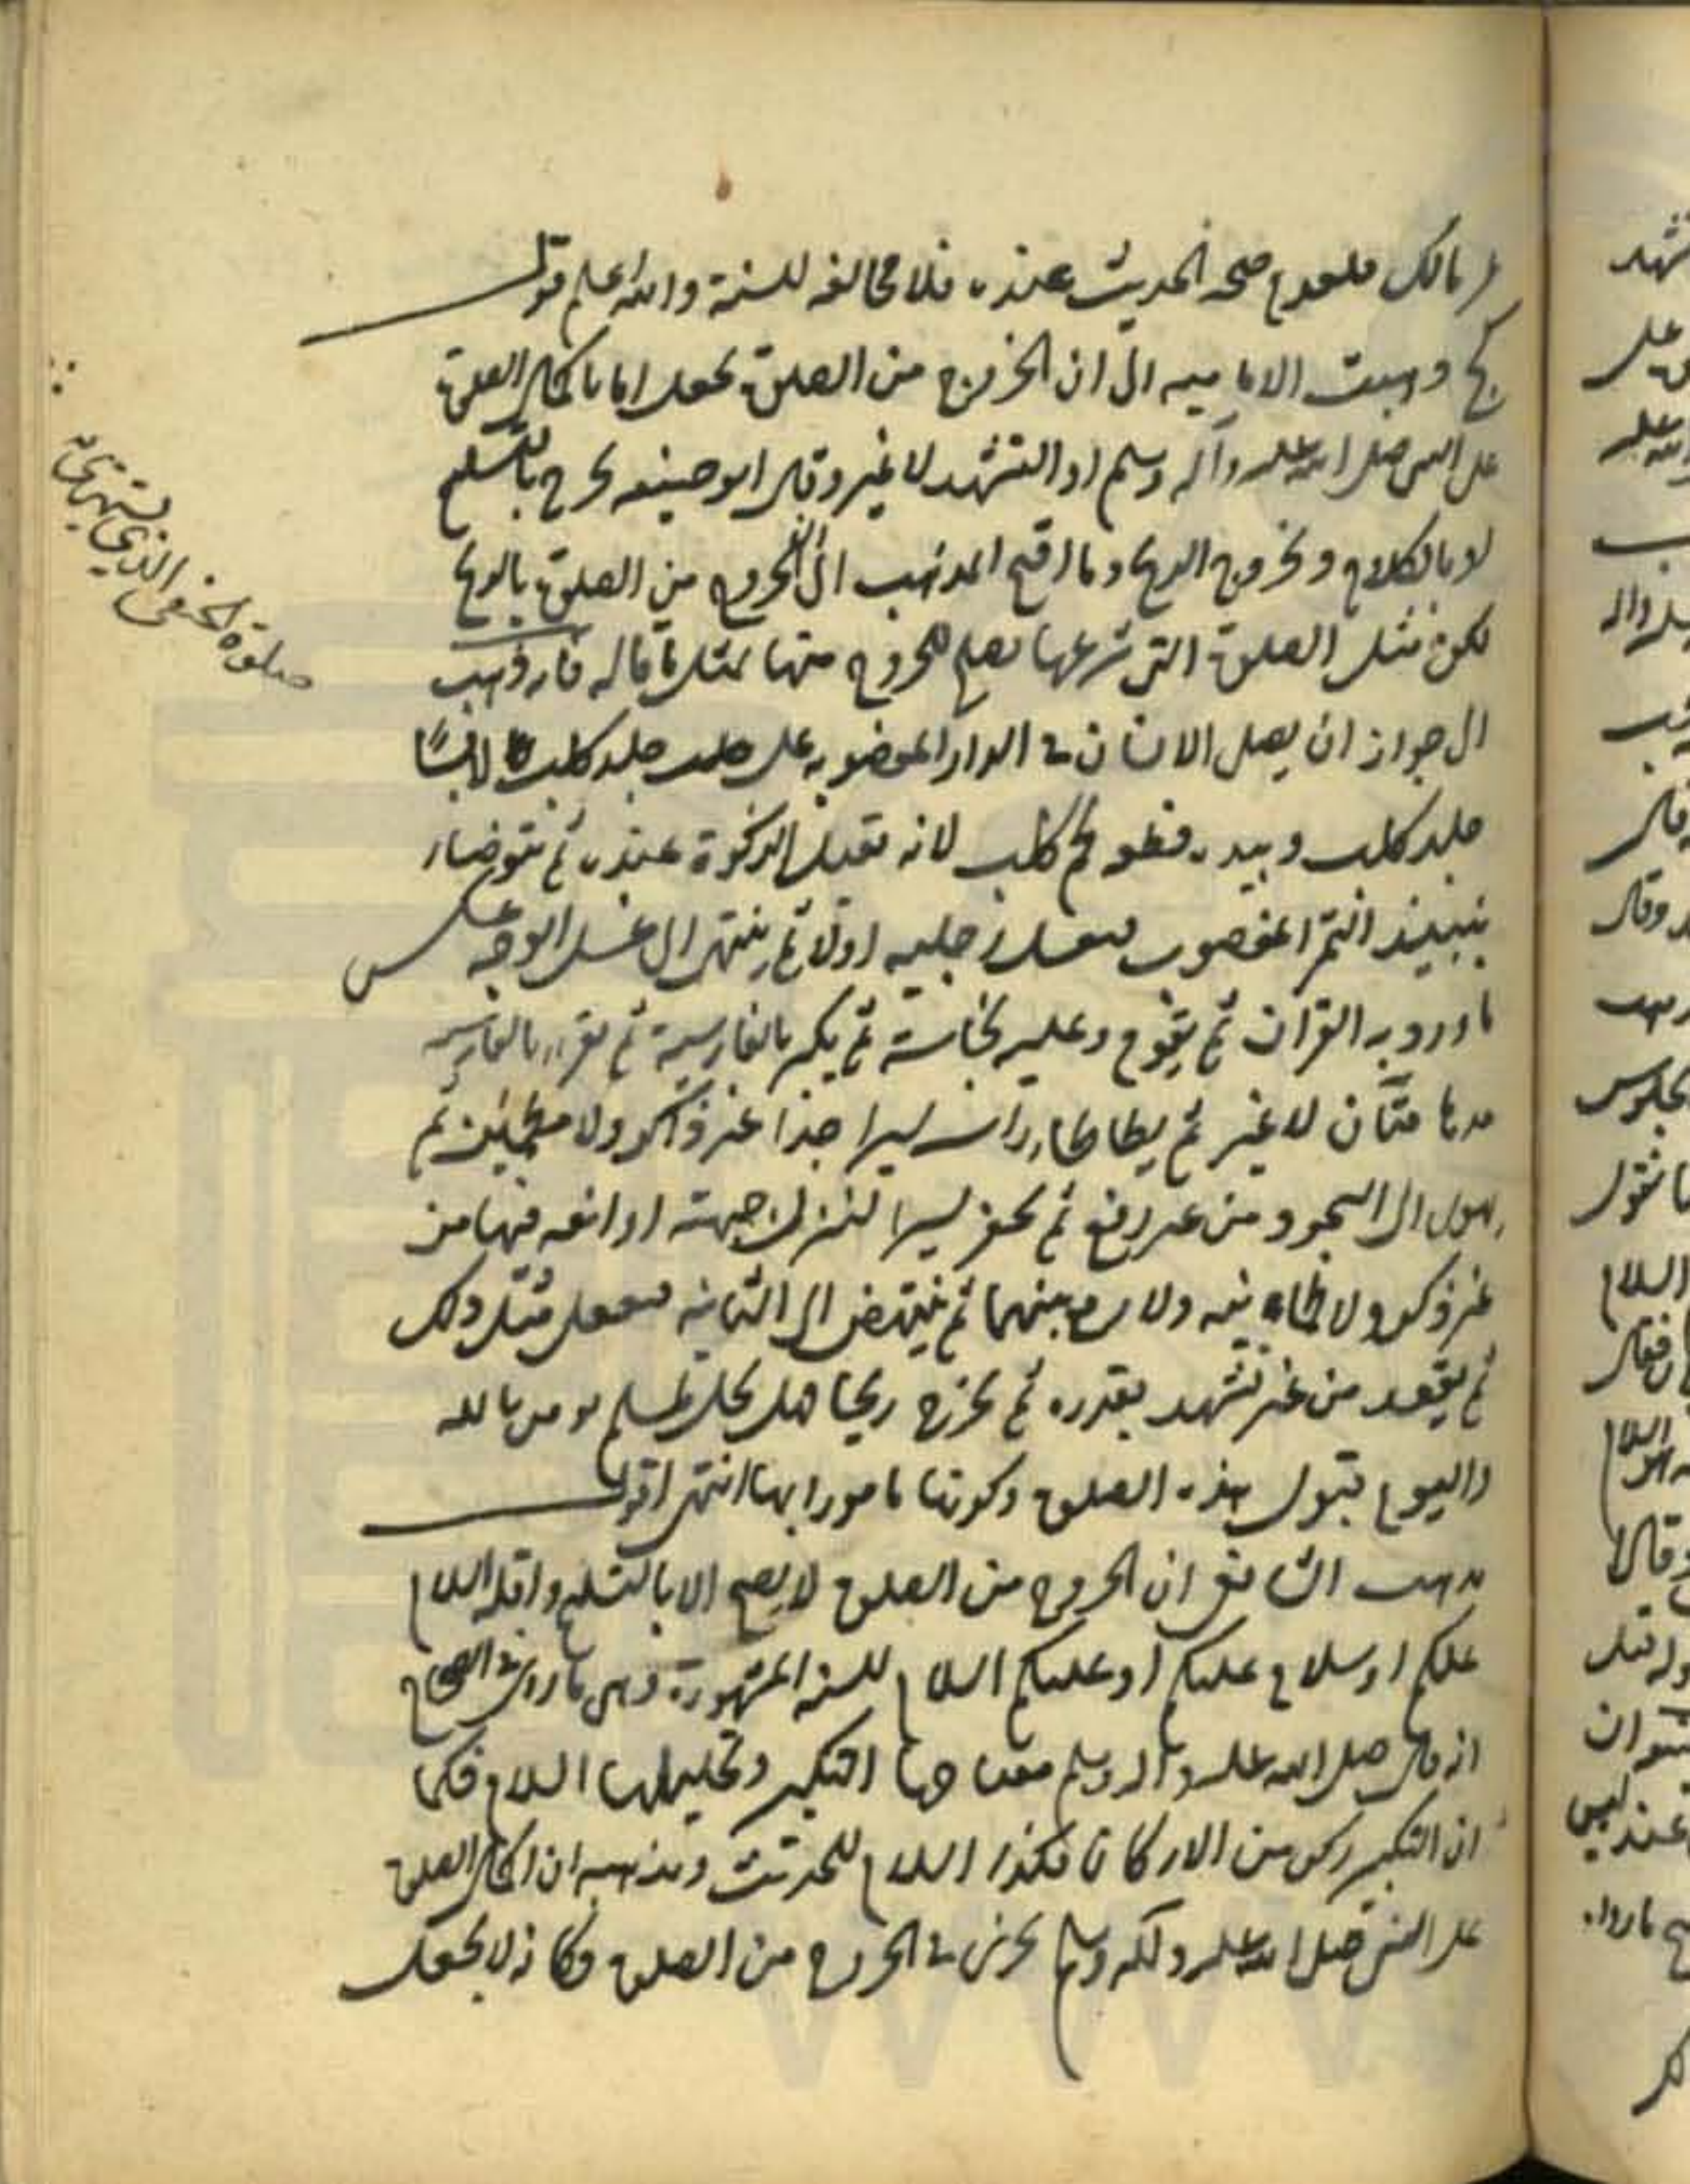 مالك فلعدم صحة الحديث عنده فلا مخالفة للسنة والله اعلم قوله
كج ذهبت الامامية الى ان الخروج من الصلوة يحصل اما باكمال الصلوة
على النبي صلى الله عليه وآله وسلم او التشهد لا غير وقال ابو حنيفه يخرج بالتسليم
او بالكلام وبخروج الريح وما اقبح المذهب الى الخروج من الصلوة بالريح
لكن مثل الصلوة التي شرعها يصلح الخروج منها بمثل ما قاله فانه ذهب
الى جواز ان يصلي الانسان في الدار المغصوبه على جلد كلب لابسا
جلد كلب وبيده قطعه لحم كلب لانه يقبل الذكوة عنده ثم يتوضا
بنبيذ التمر المغصوب فيغسل رجليه اولا ثم ينتهي الى غسل الوجه عكس
ما ورد به القرآن ثم يقوم وعليه نجاسة ثم يكبر بالفارسية ثم يقرء بالفارسيه
مدهامتان لا غير ثم يطاطاء راسه يسيرا جدا غير ذاكر ولا مطمئن ثم
يهوى الى السجود من غير رفع ثم يحفر يسيرا لينزل جبهته او انفه فيها من
غير ذكر ولا طمانينه ولا رفع بينهما ثم ينتهض الى الثانيه فيفعل مثل ذلك
ثم يقعد من غير تشهد بقدره ثم يخرج ريحا هل يحل لمسلم يومن بالله
واليوم بقبول هذه الصلوة وكونها مامورا بها انتهى اقول
مذهب الشافعي ان الخروج من الصلوة لا يصح الا بالتسليم واقله السلام
عليكم او سلام عليكم او عليكم السلام للسنه المشهورة وهي ما روى في الصحاح
انه قال صلى الله عليه وآله وسلم مفتاحها التكبير وتحليلها السلام فكما
ان التكبير ركن من الاركان فكذا السلام للحديث ومذهبه ان اكمال الصلوة
على النبي صلى الله عليه وآله وسلم يجزى في الخروج من الصلوة فكانه لا يجعل
صلوة الحنفي الذي